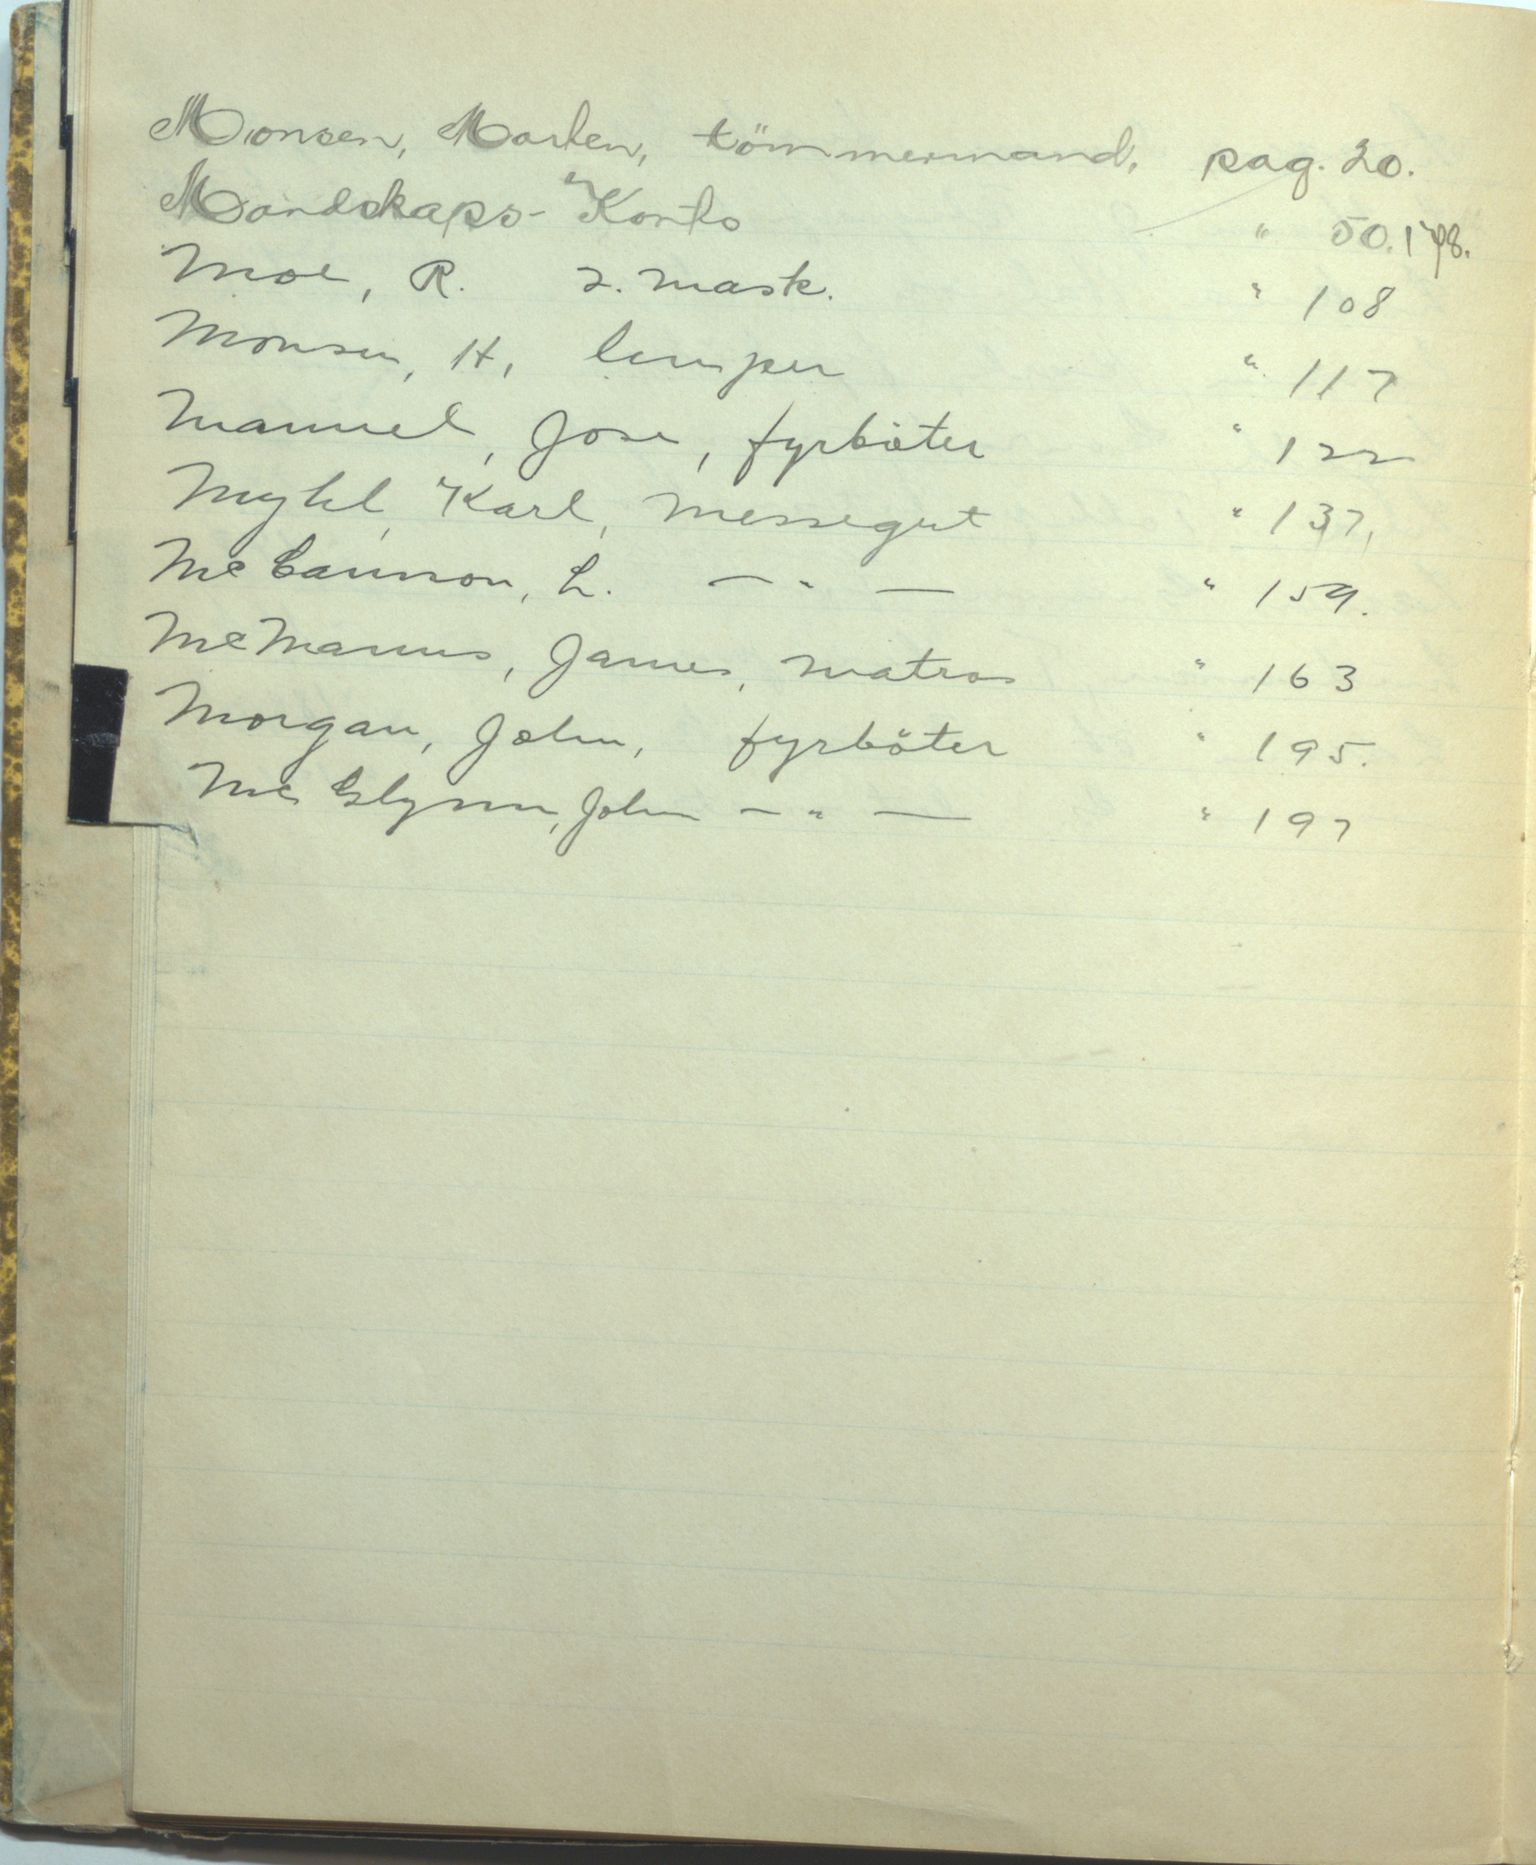 Monsen, Morten, tömmermand, pag. 20.
Mandskaps-Konto " 50. 178.
Moe, R. 2. mask. " 108
Monsen, H, lemper " 117
Manuel, Jose, fyrböter " 122
Mykl, Karl, messegut " 137,
McCannon, L. — " — " 159.
McManus, James, matros " 163
Morgan, John, fyrböter " 195.
Mc Glynn, John — " — " 197